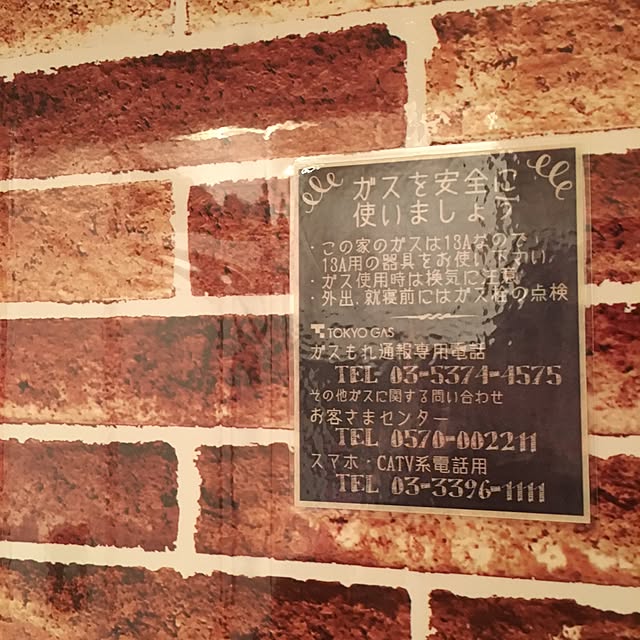 ガスを安全に
使いましょう
・この家のガスは13Aなので
13A用の器具をお使い下さい
・ガス使用時は換気に注意
・外出、就寝前にはガス栓の点検
TOKYO GAS
ガスもれ通報専用電話
TEL 03-5374-4575
その他ガスに関する問い合わせ
お客さまセンター
TEL 0570-002211
スマホ・CATV系電話用
TEL 03-3396-1111